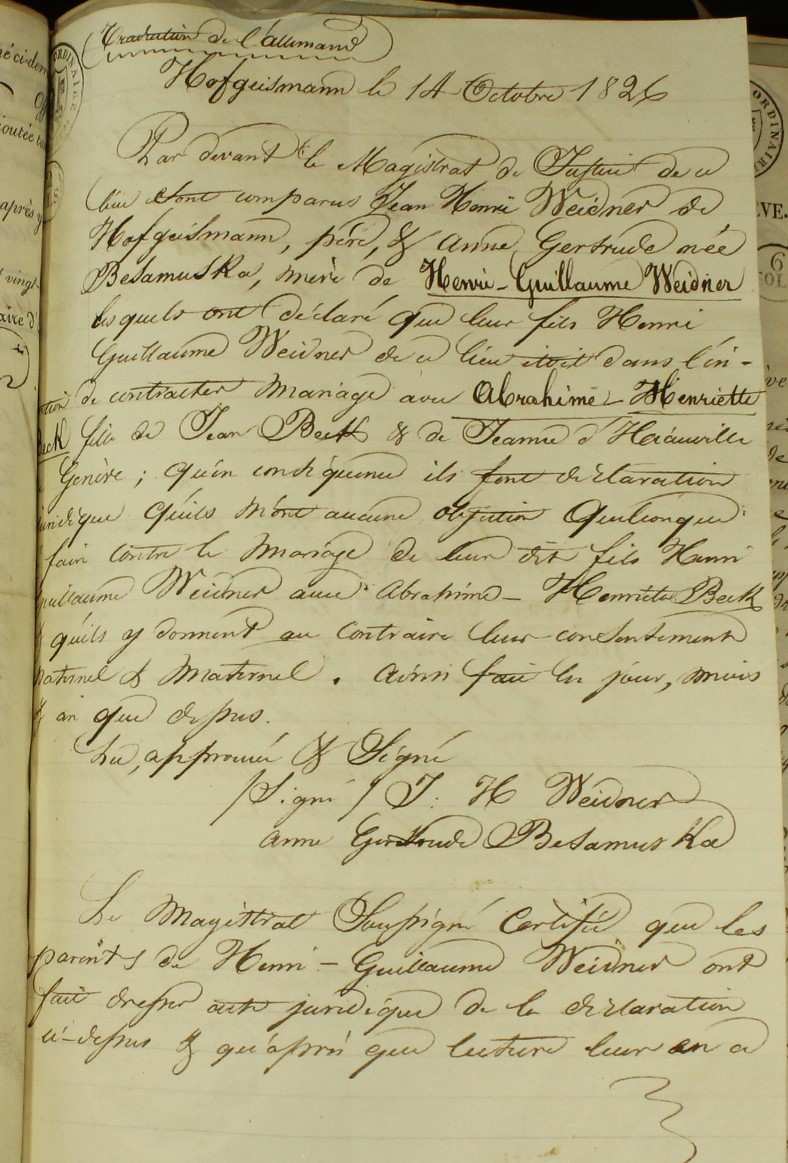 (Traduction de l'allemand)
Hofgeismann le 14 Octobre 1826
Par devant le Magistrat de Justice de ce
lieu sont comparus Jean Henri Weidner de
Hofgeismann, père, & Anne Gertrude née
Besamuska, mère de Henri-Guillaume Weidner
lesquels ont déclaré que leur fils Henri
Guillaume Weidner de ce lieu étoit dans l'in-
tention de contracter Mariage avec Abrahime-Henriette
Beck fille de Jean Beck & de Jeanne d'
Genève ; qu'en conséquence ils font déclaration
juridique qu'ils n'ont aucune objection quelconque
faire contre le Mariage de leur dit fils Henri
Guillaume Weidner avec Abrahime-Henriette Beck
& qu'ils y donnent au contraire leur consentement
paternel & Maternel. Ainsi fait les jour, mois
& an que dessus.
Lu, approuvé & Signé
/Signé/ J: H Weidner
Anne Gertrude Besamuska
Le Magistrat Soussigné Certifie que les
parents de Henri-Guillaume Weidner ont
fait dresser acte juridique de la déclaration
ci-dessus & qu'après que lecture leur en a